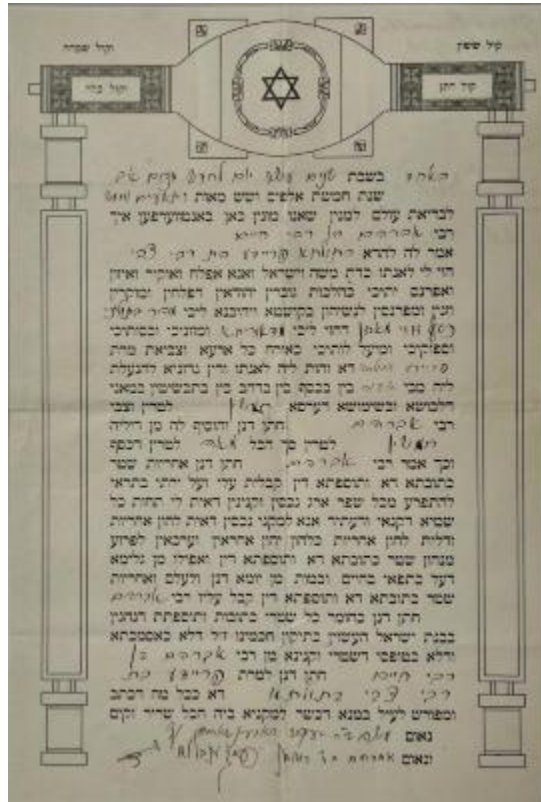 קול ששון
וקול שמחה
קול חתן
וקול כלה
באחד בשבת שנים עשר יום לחדש
שנת חמשת אלפים ושש מאות
לבריאת עולם למנין שאנו מונין כאן באנטווערפען איך
רבי אברהם בן רבי חיים
אמר לה להדא בתולתא פריידא בת רבי צבי
הוי לי לאנתו כדת משה וישראל ואנא אפלח ואוקיר ואיזון
ואפרנס יתיכי כהלכות גוברין יהודאין דפלחין ומוקרין
וזנין ומפרנסין לנשיהון בקושטא ויהיבנא ליכי מהר בתוליכי
כסף זוזי מאתן דחזי ליכי מדאוריתא ומזוניכי וכסותיכי
וסיפוקיכי ומיעל לותיכי כאורח כל ארעא וצביאת מרת
פריידא דא והות ליה לאנתו ודין נדוניא דהנעלת
ליה מבי בין בכסף בין בדהב בין בתכשיטין במאני
דלבושא ובשימושא דערסא חמשין לטרין וצבי
רבי אברהם חתן דנן והוסיף לה מן דיליה
חמשין לטרין סך הכל מאה לטרין דכסף
וכך אמר רבי אברהם חתן דנן אחריות שטר
כתובתא דא ותוספתא דין קבלית עלי ועל ירתי בתראי
להתפרע מכל שפר ארג נכסין וקנינין דאית לי תחות כל
שמיא דקנאי ודעתיד אנא למקני נכסין דאית להון אחריות
ודלית להון אחריות כלהון יהון אחראין וערבאין לפרוע
מנהון שטר כתובתא דא ותוספתא דין ואפילו מן גלימא
דעל כתפאי בחיים ובמות מן יומא דנן ולעלם ואחריות
שטר כתובתא דא ותוספתא דין קבל עליו רבי אברהם
חתן דנן כחומר כל שטרי כתובות ותוספתת דנהגין
בבנת ישראל העשוין כתיקון חכמינו ז״ל דלא כאסמכתא
ודלא כטופסי דשטרי וקנינא מן רבי אברהם בן
רבי חיים חתן דנן למרת פריידא בת
רבי צבי בתולתא דא בכל מה דכתב
ומפורש לעיל במנא דכשר למקניא ביה הכל שריר וקים
נאום עד
ונאום